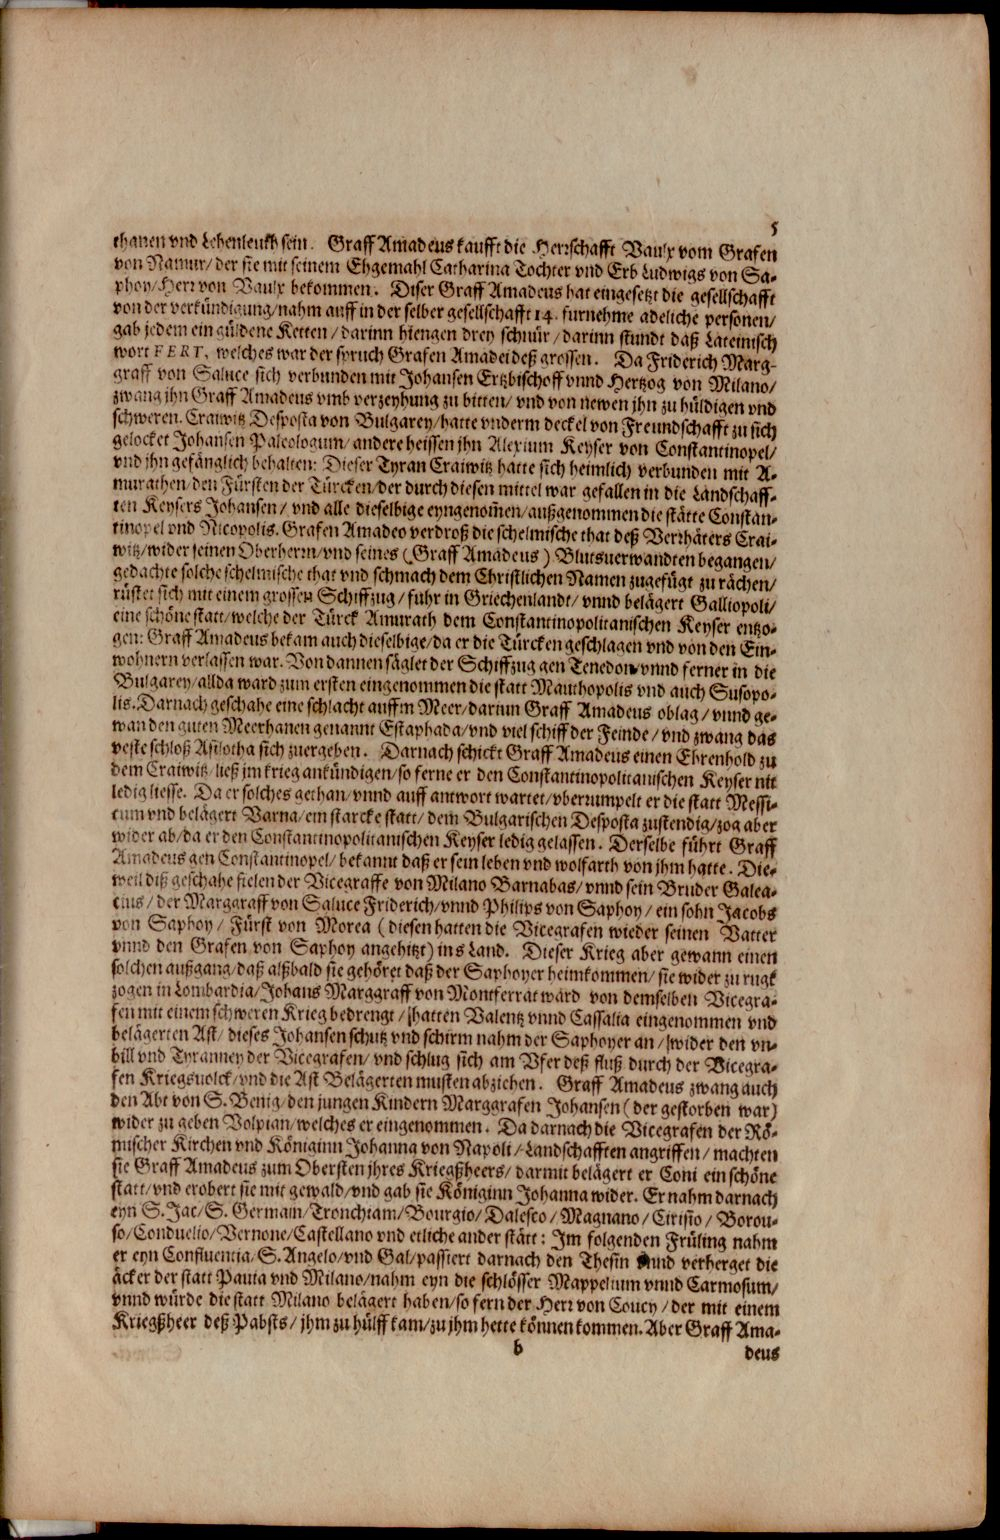 5
thanen vnd Lehenleuth sein. Graff Amadeus kaufft die Herrschafft Vaulx vom Grafen
von Namur/ der sie mit seinem Ehgemahl Catharina Tochter vnd Erb Ludwigs von Sa-
phoy/ Herr von Vaulx bekommen. Diser Graff Amadeus hat eingesetzt die gesellschafft
von der verkündigung/ nahm auff in der selber gesellschafft 14. furnehme adeliche personen/
gab jedem ein güldene Ketten/ darinn hiengen drey schnür/ darinn stundt daß Lateinisch
wort FERT, welches war der spruch Grafen Amadei deß grossen. Da Friderich Marg-
graff von Saluce sich verbunden mit Johansen Ertzbischoff vnnd Hertzog von Milano/
zwang jhn Graff Amadeus vmb verzeyhung zu bitten/ vnd von newen jhn zu hüldigen vnd
schweren. Craiwitz Desposta von Bulgarey/ hatte vnderm deckel von Freundschafft zu sich
gelocket Johansen Paleologum/ andere heissen jhn Alexium Keyser von Constantinopel/
vnd jhn gefänglich behalten: Dieser Tyran Craiwitz hatte sich heimlich verbunden mit A-
murathen/ den Fürsten der Türcken/ der durch diesen mittel war gefallen in die Landschaff-
ten Keysers Johansen/ vnd alle dieselbige eyngenom̃en/ außgenommen die stätte Constan-
tinopel vnd Nicopolis. Grafen Amadeo verdroß die schelmische that deß Verrhäters Crai-
witz/ wider seinen Oberherrn/ vnd seines (Graff Amadeus) Blutsuerwandten begangen/
gedachte solche schelmische that vnd schmach dem Christlichen Namen zugefügt zu rächen/
rüstet sich mit einem grossen Schiffzug/ fuhr in Griechenlandt/ vnnd belägert Galliopoli/
eine schöne statt/ welche der Türck Amurath dem Constantinopolitanischen Keyser entzo-
gen: Graff Amadeus bekam auch dieselbige/ da er die Türcken geschlagen vnd von den Ein-
wohnern verlassen war. Von dannen säglet der Schiffzug gen Tenedon/ vnnd ferner in die
Bulgarey/ allda ward zum ersten eingenommen die statt Manthopolis vnd auch Susopo-
lis. Darnach geschahe eine schlacht auffm Meer/ darinn Graff Amadeus oblag/ vnnd ge-
wan den guten Meerhanen genannt Estaphada/ vnd viel schiff der Feinde/ vnd zwang das
veste schloß Astlotha sich zuergeben. Darnach schickt Graff Amadeus einen Ehrenhold zu
dem Craiwitz/ ließ jm krieg ankündigen/ so ferne er den Constantinopolitanischen Keyser nit
ledig liesse. Da er solches gethan/ vnnd auff antwort wartet/ vberrumpelt er die statt Messi-
cum vnd belägert Varna/ ein starcke statt/ dem Bulgarischen Desposta zustendig/ zog aber
wider ab/ da er den Constantinopolitanischen Keyser ledig gelassen. Derselbe führt Graff
Amadeus gen Constantinopel/ bekannt daß er sein leben vnd wolfarth von jhm hatte. Die-
weil diß geschahe fielen der Vicegraffe von Milano Barnabas/ vnnd sein Bruder Galea-
cius/ der Marggraff von Saluce Friderich/ vnnd Philips von Saphoy/ ein sohn Jacobs
von Saphoy/ Fürst von Morea (diesen hatten die Vicegrafen wieder seinen Vatter
vnnd den Grafen von Saphoy angehitzt) ins Land. Dieser Krieg aber gewann einen
solchen außgang/ daß alßbald sie gehöret daß der Saphoyer heimkommen/ sie wider zu rugk
zogen in Lombardia/ Johans Marggraff von Montferrat ward von demselben Vicegra-
fen mit einem schweren Krieg bedrengt/ hatten Valentz vnnd Cassalia eingenommen vnd
belägerten Ast/ dieses Johansen schutz vnd schirm nahm der Saphoyer an/ wider den vn-
bill vnd Tyranney der Vicegrafen/ vnd schlug sich am Vfer deß fluß durch der Vicegra-
fen Kriegsuolck/ vnd die Ast Belägerten musten abziehen. Graff Amadeus zwang auch
den Abt von S. Benig/ den jungen Kindern Marggrafen Johansen (der gestorben war)
wider zu geben Volpian/ welches er eingenommen. Da darnach die Vicegrafen der Rö-
mischer Kirchen vnd Königinn Johanna von Napoli/ Landschafften angriffen/ machten
sie Graff Amadeus zum Obersten jhres Kriegßheers/ darmit belägert er Coni ein schöne
statt/ vnd erobert sie mit gewald/ vnd gab sie Königinn Johanna wider. Er nahm darnach
eyn S. Jac/ S. Germain/ Tronchiam/ Bourgio/ Dalesco/ Magnano/ Cirisio/ Borou-
so/ Conduelio/ Vernone/ Castellano vnd etliche ander stätt: Im folgenden Früling nahm
er eyn Confluentia/ S. Angelo/ vnd Gal/ passiert darnach den Thesin vnnd verherget die
äcker der statt Pauia vnd Milano/ nahm eyn die schlösser Mappelnum vnnd Carmosum/
vnnd würde die statt Milano belägert haben/ so fern der Herr von Coucy/ der mit einem
Kriegßheer deß Pabsts/ jhm zu hülff kam/ zu jhm hette können kommen. Aber Graff Ama-
b
deus